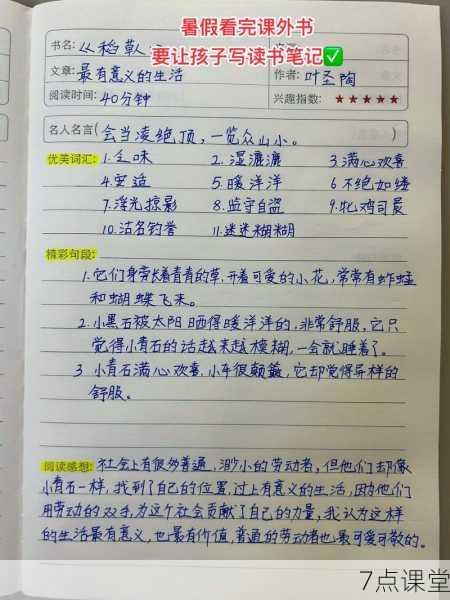 暑假看完课外书
要让孩子写读书笔记✅
书名:
文章: 最有意义的生活
作者: 叶圣陶
阅读时间: 40分钟
兴趣指数: ★★★★★
名人名言( 会当凌绝顶,一览众山小。 )
优美词汇: 1.乏味 2.湿漉漉 3.满心欢喜
4.安适 5.暖洋洋 6.不绝如缕
7.浮光掠影 8.监守自盗 9.牝鸡司晨
10.沽名钓誉 11.迷迷糊糊
精彩句段:
1.它们身旁长着青青的草,开着可爱的小花,常常有蚱蜢
和蝴蝶飞来。
2.小黑石被太阳晒得暖洋洋的,非常舒服,它只
觉得小青石的话越来越模糊,一会就睡着了。
3 小青石满心欢喜,小车很颠簸,它却觉得异样的
舒服。
阅读感想: 社会上有很多普通,渺小的劳动者,但他们却像
小青石一样,找到了自己的位置,过上有意义的生活,因为他们
用劳动的双手,为这个社会贡献了自己的力量,我认为这样
的生活最有意义,也最有价值,普通的劳动者也最可爱可敬的。
7点课堂